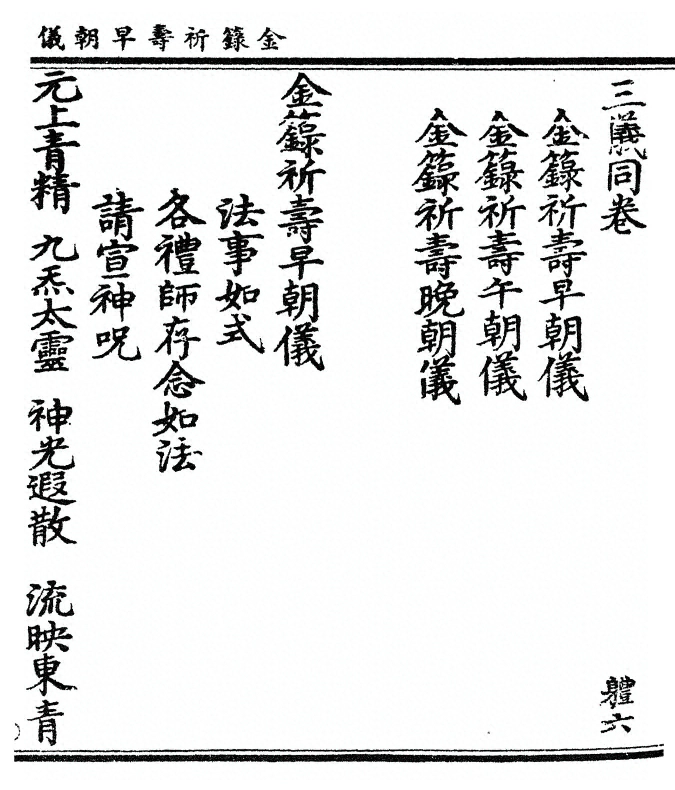 金籙祈壽早朝儀
三儀同卷
體六
金籙祈壽早朝儀
金籙祈壽午朝儀
金籙祈壽晚朝儀
金籙祈壽早朝儀
法事如式
各禮師存念如法
請宣神呪
元上青精 九炁太靈 神光遐散 流映東青